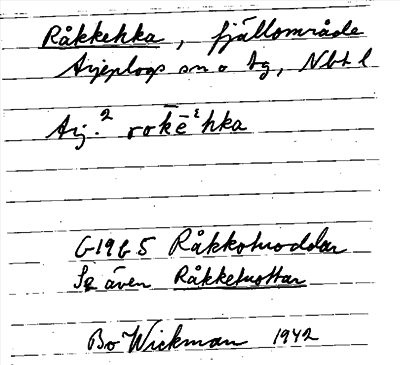 Råkkehka, fjällområde
Arjeplogs sn o tg, Nbt l
Arj.² rokē hka
G19 G5 Råkkotuoddar
Se även Råkketuottar
Bo Wickman 1942